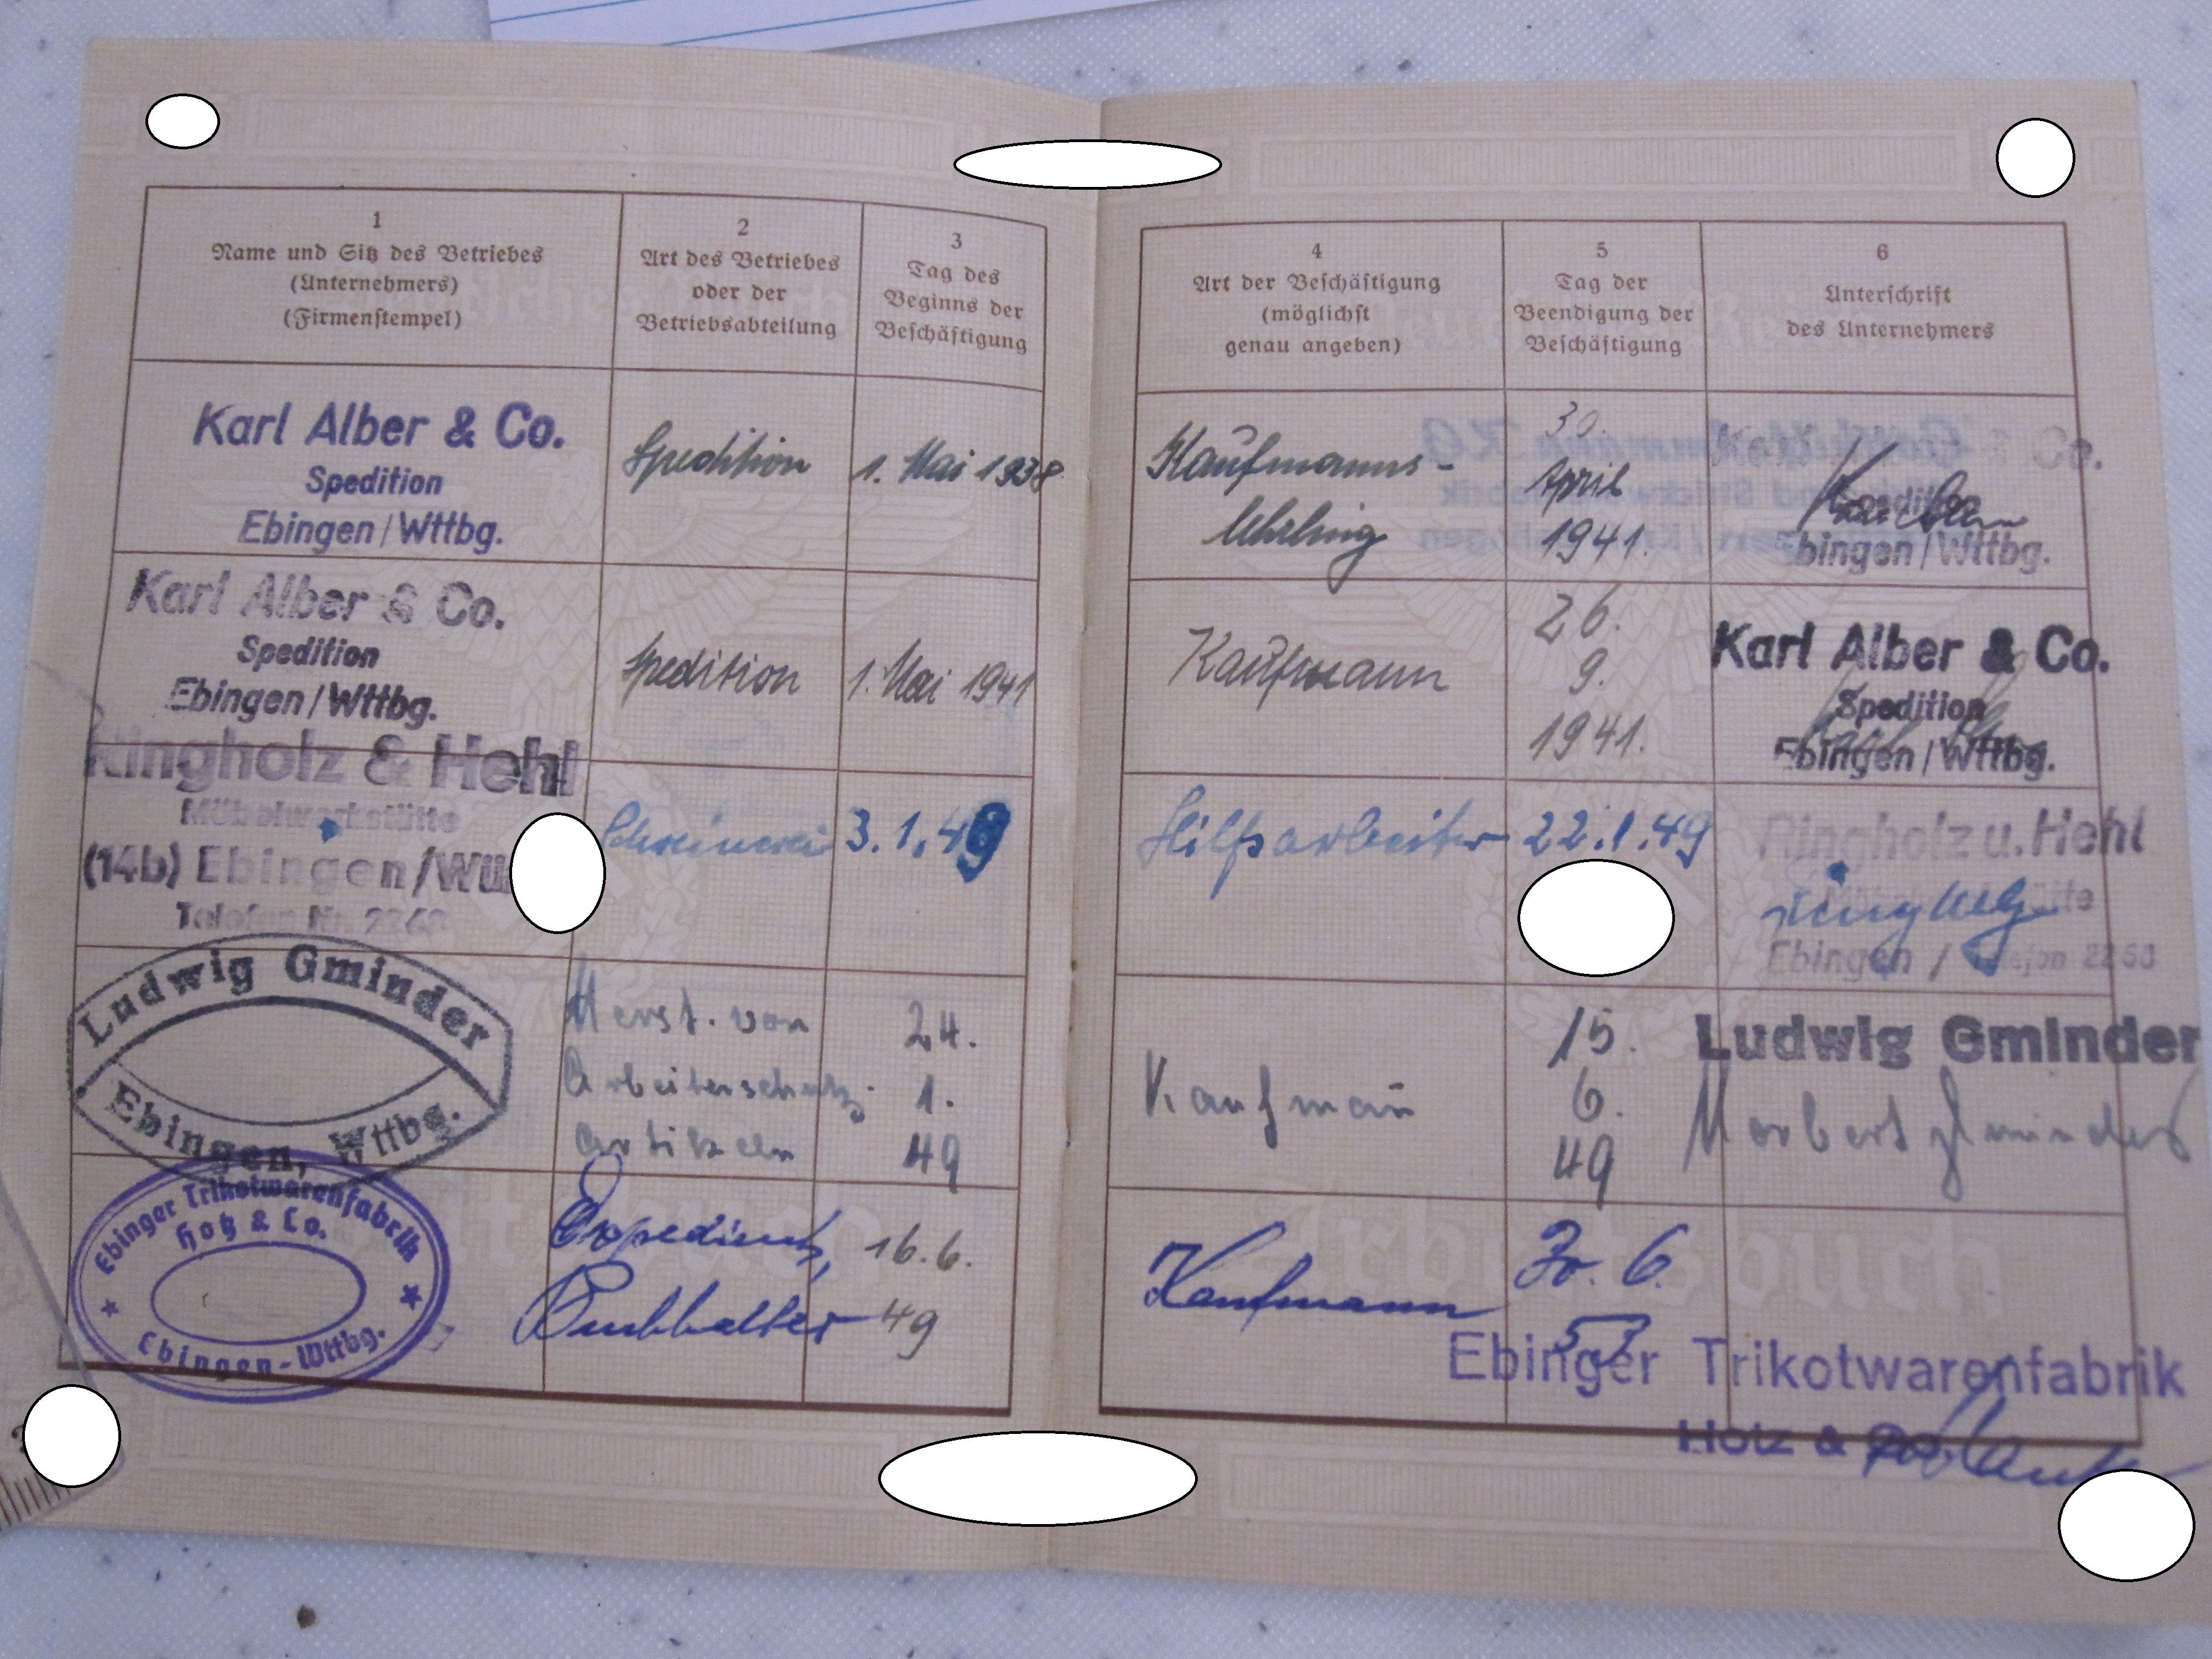 1
Name und Sitz des Betriebes
(Unternehmers)
(Firmenstempel)
2
Art des Betriebes
oder der
Betriebsabteilung
3
Tag des
Beginns der
Beschäftigung
4
Art der Beschäftigung
(möglichst
genau angeben)
5
Tag der
Beendigung der
Beschäftigung
6
Unterschrift
des Unternehmers
Karl Alber & Co.
Spedition
Ebingen/Wttbg.
Spedition
1. Mai 1938
Kaufmanns-
lehrling
30.
April
1941.
Co.
Ebingen/Wttbg.
Karl Alber & Co.
Spedition
Ebingen/Wttbg.
Spedition
1. Mai 1941
Kaufmann
26.
9.
1941.
Karl Alber & Co.
Spedition
Ebingen/Wttbg.
Ringholz & Hehl
Möbelwerkstätte
(14b) Ebingen/Wü
Telefon Nr. 2268
Schreinerei
3.1.49
Hilfsarbeiter
22.1.49
Ringholz u. Hehl
Ebingen / Telefon 2268
Ludwig Gminder
Ebingen, Wttbg.
Herst. von
Arbeiterschutz-
artikeln
24.
1.
49
Kaufmañ
15.
6.
49
Ludwig Gminder
Norbert Gminder
Ebinger Trikotwarenfabrik
Hotz & Co.
Ebingen-Wttbg.
Expedient,
Buchhalter
16.6.
49
Kaufmann
30. 6.
53
Ebinger Trikotwarenfabrik
Hotz &
Arbeitsbuch